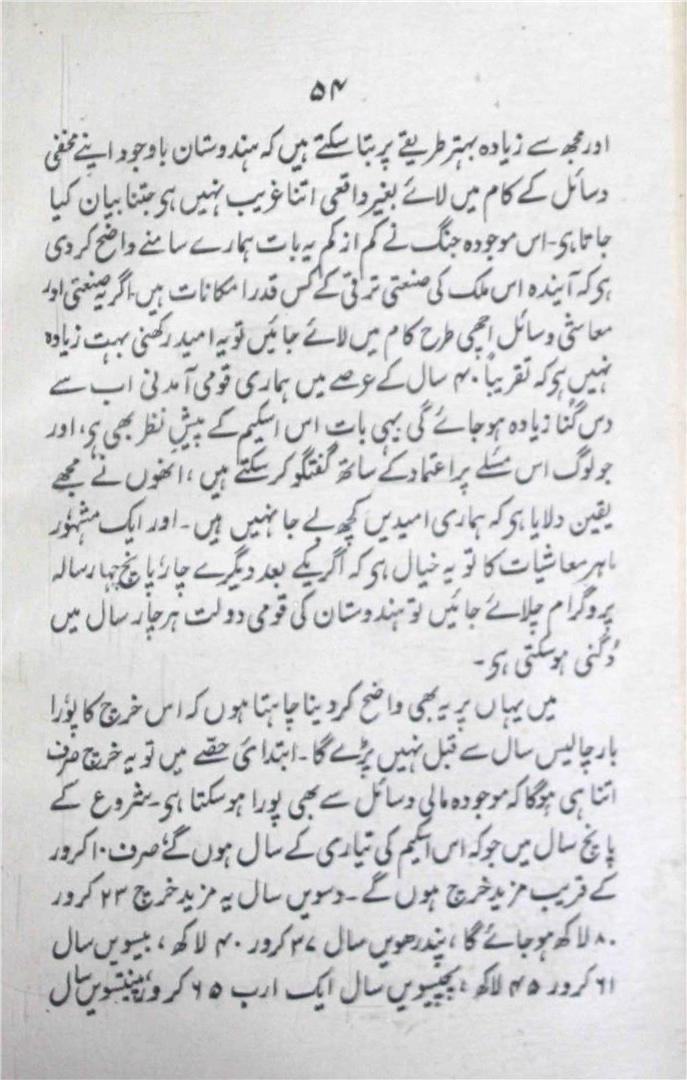 ۵۴
اور مجھ سے زیادہ بہتر طریقے پر بتا سکتے ہیں کہ ہندوستان باوجود اپنے مخفی
وسائل کے کام میں لائے بغیر واقعی اتنا غریب نہیں ہی جتنا بیان کیا
جاتا ہی۔ اس موجودہ جنگ نے کم از کم یہ بات ہمارے سامنے واضح کر دی
ہی کہ آیندہ اس ملک کی صنعتی ترقی کے کس قدر امکانات ہیں۔ اگر یہ صنعتی اور
معاشی وسائل اچھی طرح کام میں لائے جائیں تو یہ امید رکھنی بہت زیادہ
نہیں ہی کہ تقریباً ۴۰ سال کے عرصے میں ہماری قومی آمدنی اب سے
دس گنا زیادہ ہو جائے گی یہی بات اس اسکیم کے پیشِ نظر بھی ہی، اور
جو لوگ اس مسئلے پر اعتماد کے ساتھ گفتگو کر سکتے ہیں، انھوں نے مجھے
یقین دلایا ہی کہ ہماری امیدیں کچھ بے جا نہیں ہیں۔ اور ایک مشہور
ماہر معاشیات کا تو یہ خیال ہی کہ اگر یکے بعد دیگرے چار پانچ چہار سالہ
پروگرام چلائے جائیں تو ہندوستان کی قومی دولت ہر چار سال میں
دُگنی ہو سکتی ہی۔
میں یہاں پر یہ بھی واضح کر دینا چاہتا ہوں کہ اس خرچ کا پورا
بار چالیس سال سے قبل نہیں پڑے گا۔ ابتدائی حصّے میں تو یہ خرچ صرف
اتنا ہی ہوگا کہ موجودہ مالی وسائل سے بھی پورا ہو سکتا ہی۔ شروع کے
پانچ سال میں جو کہ اس اسکیم کی تیاری کے سال ہوں گے صرف ۱۰ کرور
کے قریب مزید خرچ ہوں گے۔ دسویں سال یہ مزید خرچ ۲۳ کرور
۸۰ لاکھ ہو جائے گا، پندرھویں سال ۳۷ کرور ۴۰ لاکھ، بیسویں سال
۶۱ کرور ۴۵ لاکھ، پچیسویں سال ایک ارب ۶۵ کرور، پینتسویں سال